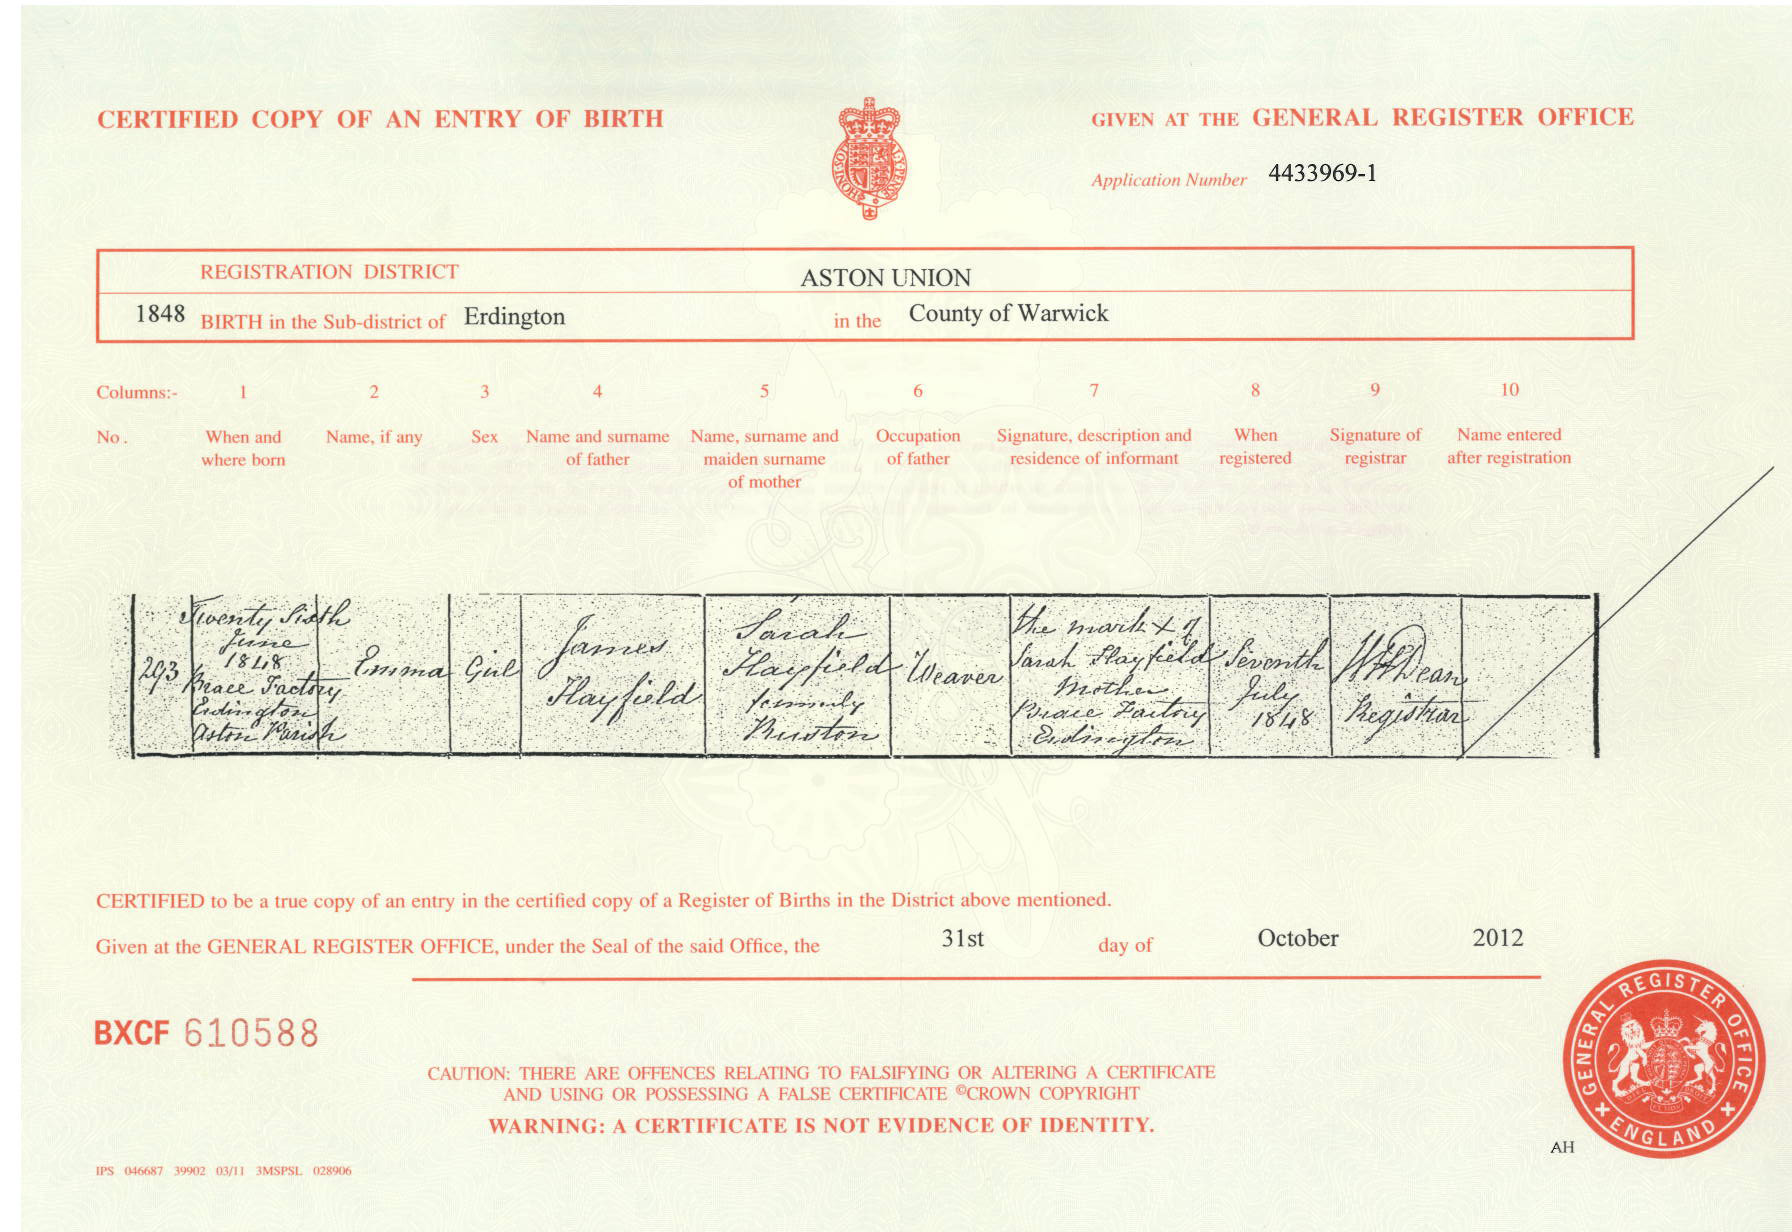 CERTIFIED COPY OF AN ENTRY OF BIRTH
GIVEN AT THE GENERAL REGISTER OFFICE
Application Number 4433969-1
REGISTRATION DISTRICT ASTON UNION
1848 BIRTH in the Sub-district of Erdington in the County of Warwick
Columns:- 1 2 3 4 5 6 7 8 9 10
No. When and where born
Name, if any
Sex
Name and surname of father
Name, surname and maiden surname of mother
Occupation of father
Signature, description and residence of informant
When registered
Signature of registrar
Name entered after registration
293
Twenty Sixth
June
1848
Brace Factory
Erdington
Aston Parish
Emma
Girl
James
Hayfield
Sarah
Hayfield
formerly
Ruston
Weaver
The mark X of
Sarah Hayfield
Mother
Brace Factory
Erdington
Seventh
July
1848
Dean
Registrar
CERTIFIED to be a true copy of an entry in the certified copy of a Register of Births in the District above mentioned.
Given at the GENERAL REGISTER OFFICE, under the Seal of the said Office, the 31st day of October 2012
BXCF 610588
CAUTION: THERE ARE OFFENCES RELATING TO FALSIFYING OR ALTERING A CERTIFICATE
AND USING OR POSSESSING A FALSE CERTIFICATE ©CROWN COPYRIGHT
WARNING: A CERTIFICATE IS NOT EVIDENCE OF IDENTITY.
GENERAL REGISTER OFFICE
ENGLAND
AH
IPS 046687 39902 03/11 3MSPSL 028906